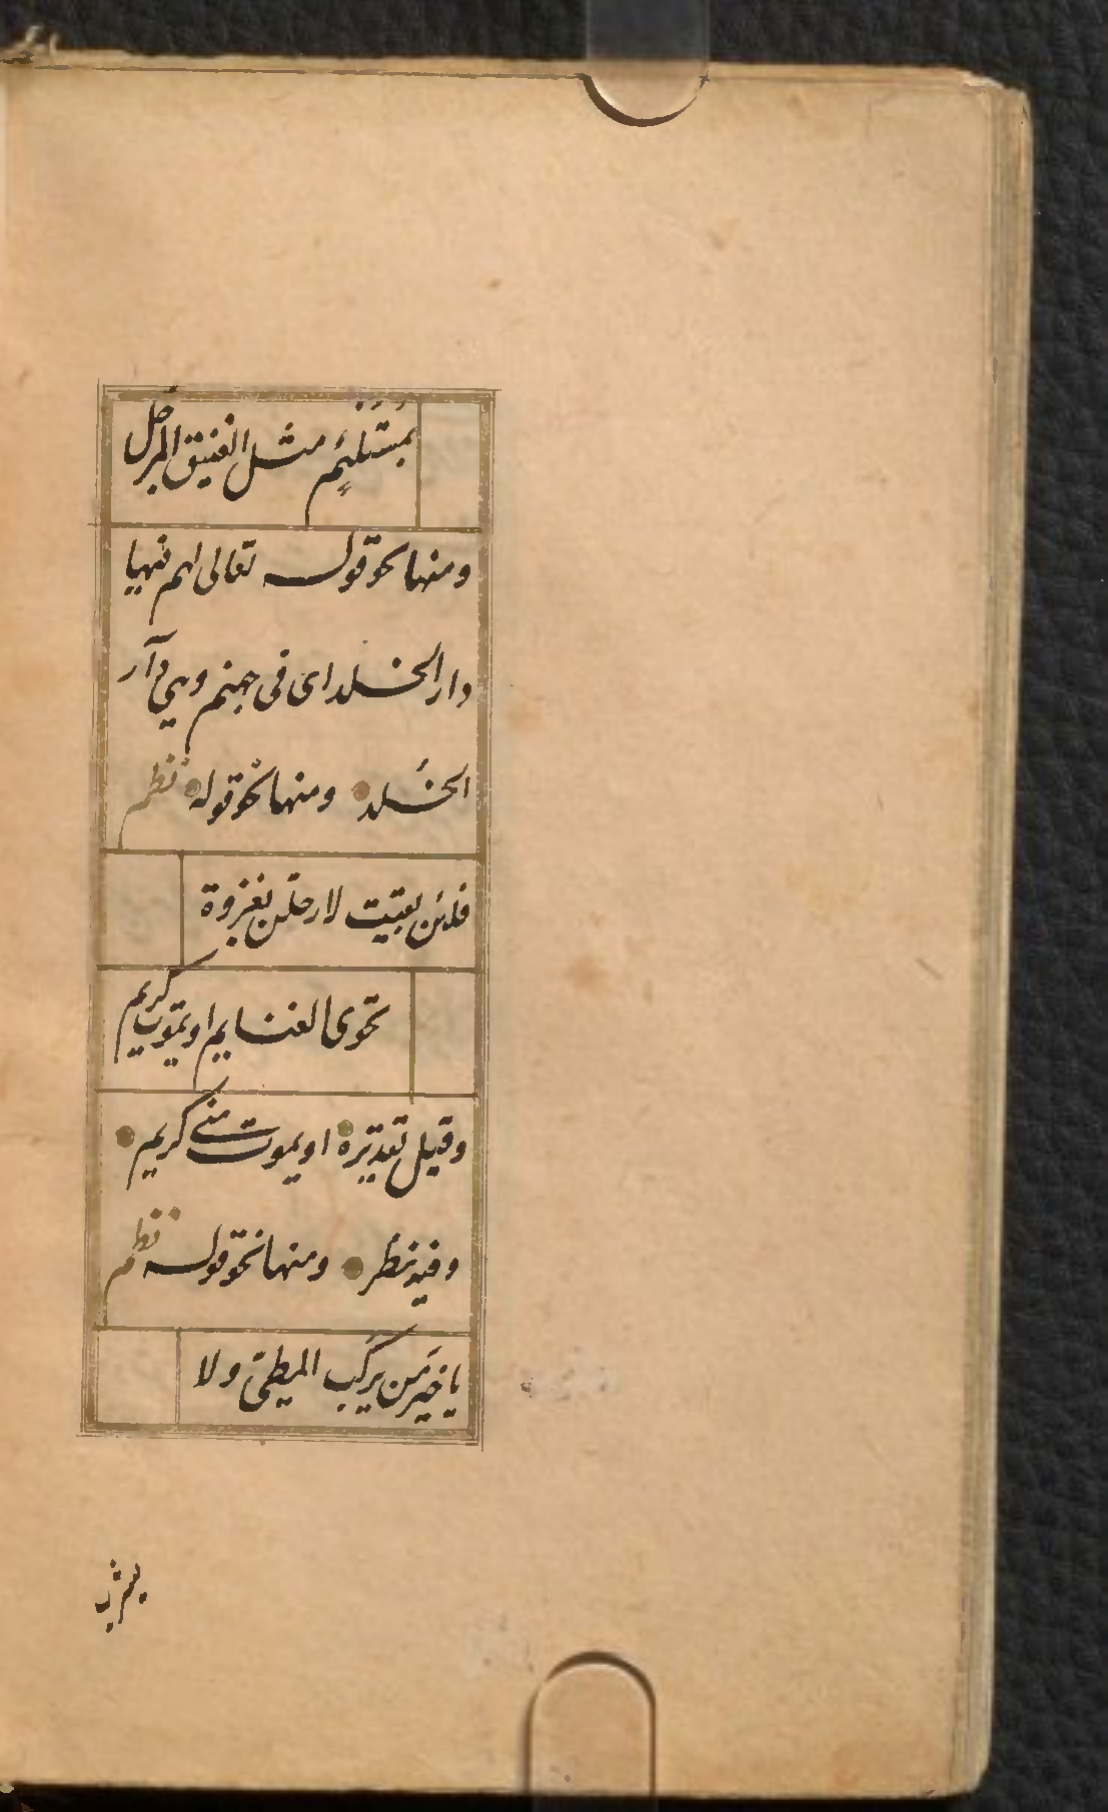 بمُستَلئِمٍ مثل الفنيق المرحّل
ومنها نحو قوله تعالى لهم فيها
دار الخلد اى فى جهنم وهى دآر
الخُلد ومنها نحو قوله نظم
فلئن بقيت لارحلّن بغزوة
تحوى الغنايم او يموت كريم
وقيل تقديره او يموت منى كريم
وفيه نظر ومنها نحو قوله نظم
يا خير من يركب المطى ولا
يشرب